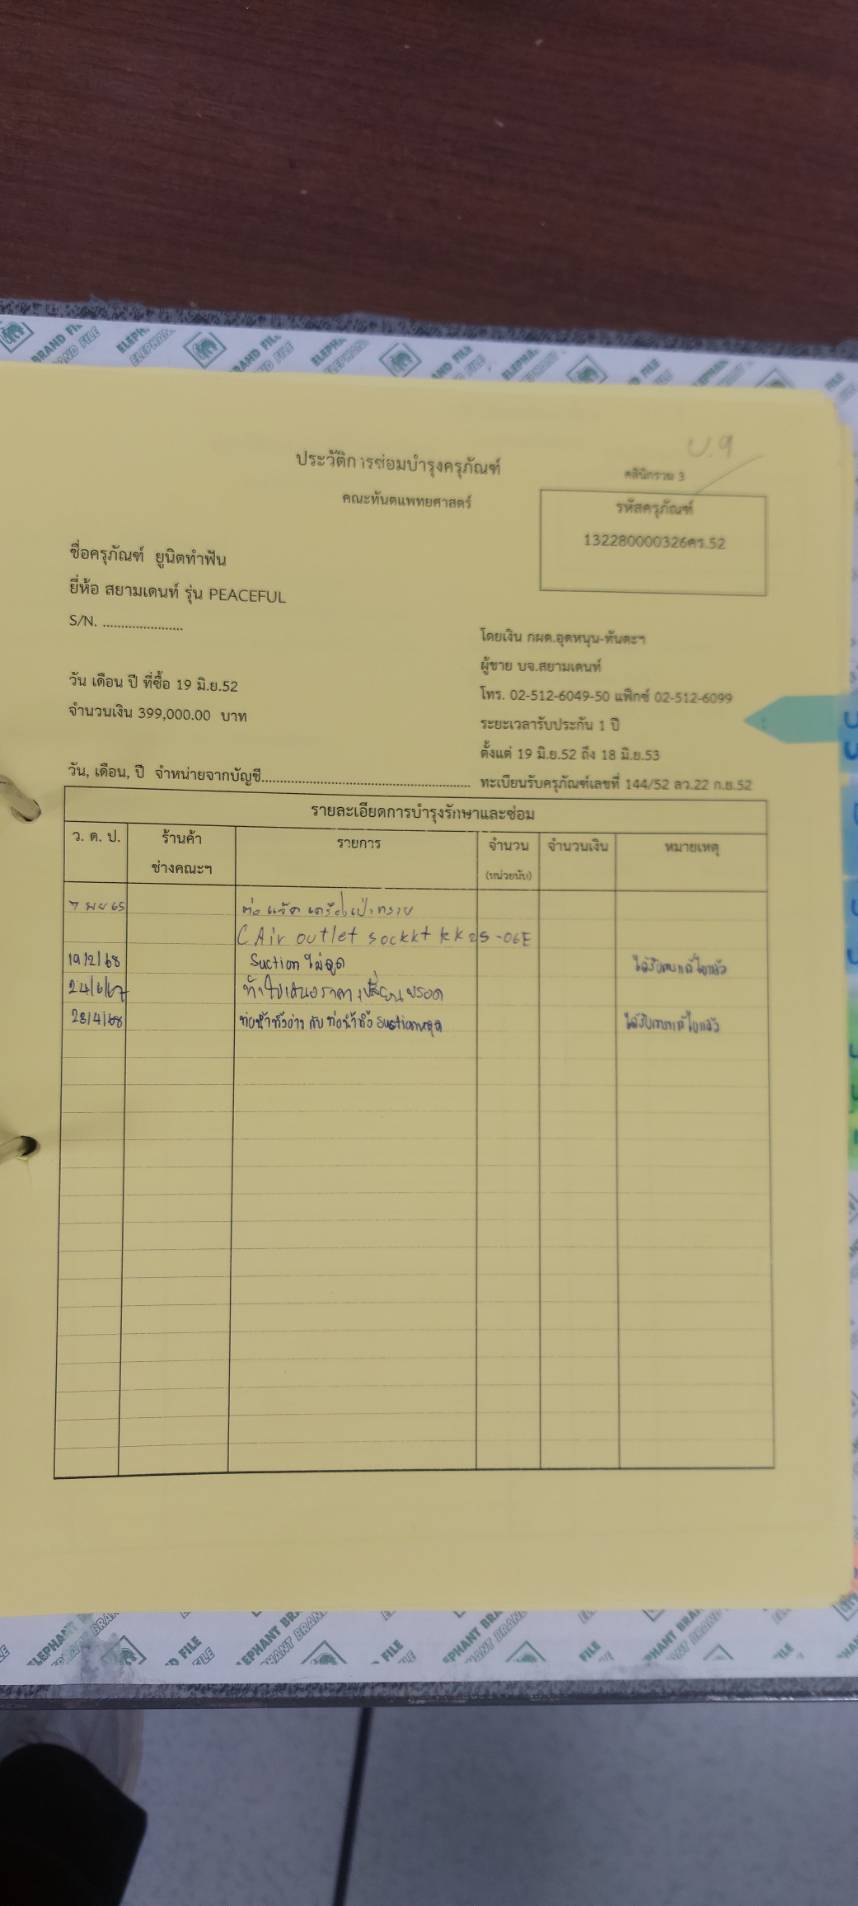 ELEPHANT BRAND FILE
บ.9
ประวัติการซ่อมบำรุงครุภัณฑ์
คลินิกรวม 3
คณะทันตแพทยศาสตร์
รหัสครุภัณฑ์
132280000326คร.52
ชื่อครุภัณฑ์ ยูนิตทำฟัน
ยี่ห้อ สยามเดนท์ รุ่น PEACEFUL
S/N. ......................
โดยเงิน กผด.อุดหนุน-ทันตะฯ
ผู้ขาย บจ.สยามเดนท์
วัน เดือน ปี ที่ซื้อ 19 มิ.ย.52
โทร. 02-512-6049-50 แฟ็กซ์ 02-512-6099
จำนวนเงิน 399,000.00 บาท
ระยะเวลารับประกัน 1 ปี
ตั้งแต่ 19 มิ.ย.52 ถึง 18 มิ.ย.53
วัน, เดือน, ปี จำหน่ายจากบัญชี..................................................
ทะเบียนรับครุภัณฑ์เลขที่ 144/52 ลว.22 ก.ย.52
รายละเอียดการบำรุงรักษาและซ่อม
ว. ด. ป. ร้านค้า รายการ จำนวน จำนวนเงิน หมายเหตุ
ช่างคณะฯ (หน่วยนับ)
7 พย 65
Air outlet sockkt kk2S-06E
19/2/68 Suction ไม่ดูด
24/6/67 ทำใบเสนอราคา
28/4/68 ท่อน้ำทิ้งอ่าง กับ ท่อน้ำทิ้ง Suctionหลุด
ELEPHANT BRAND FILE